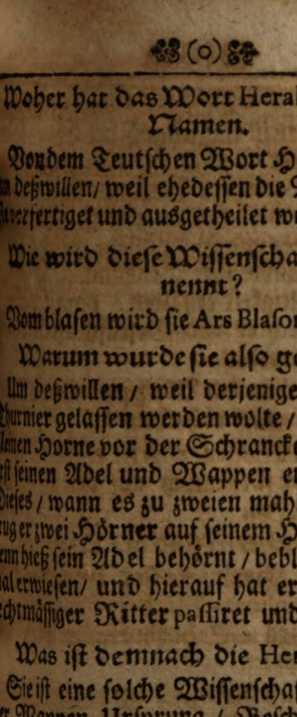 (o)
Woher hat das Wort Heral
Namen.
Von dem Teutschen Wort H
deßwillen/ weil ehedessen die
fertiget und ausgetheilet w
Wie wird diese Wissenscha
nennt?
Vom blasen wird sie Ars Blaso
Warum wurde sie also g
Um deßwillen / weil derjenige
Thurnier gelassen werden wolte /
Horne vor der Schrancke
seinen Adel und Wappen e
Dieses / wann es zu zweien mah
trug er zwei Hörner auf seinem H
hieß sein Adel behörnt / bebl
erwiesen/ und hierauf hat er
rechtmässiger Ritter passiret und
Was ist demnach die He
Sie ist eine solche Wissenscha
Wappen Ursprung / Besch